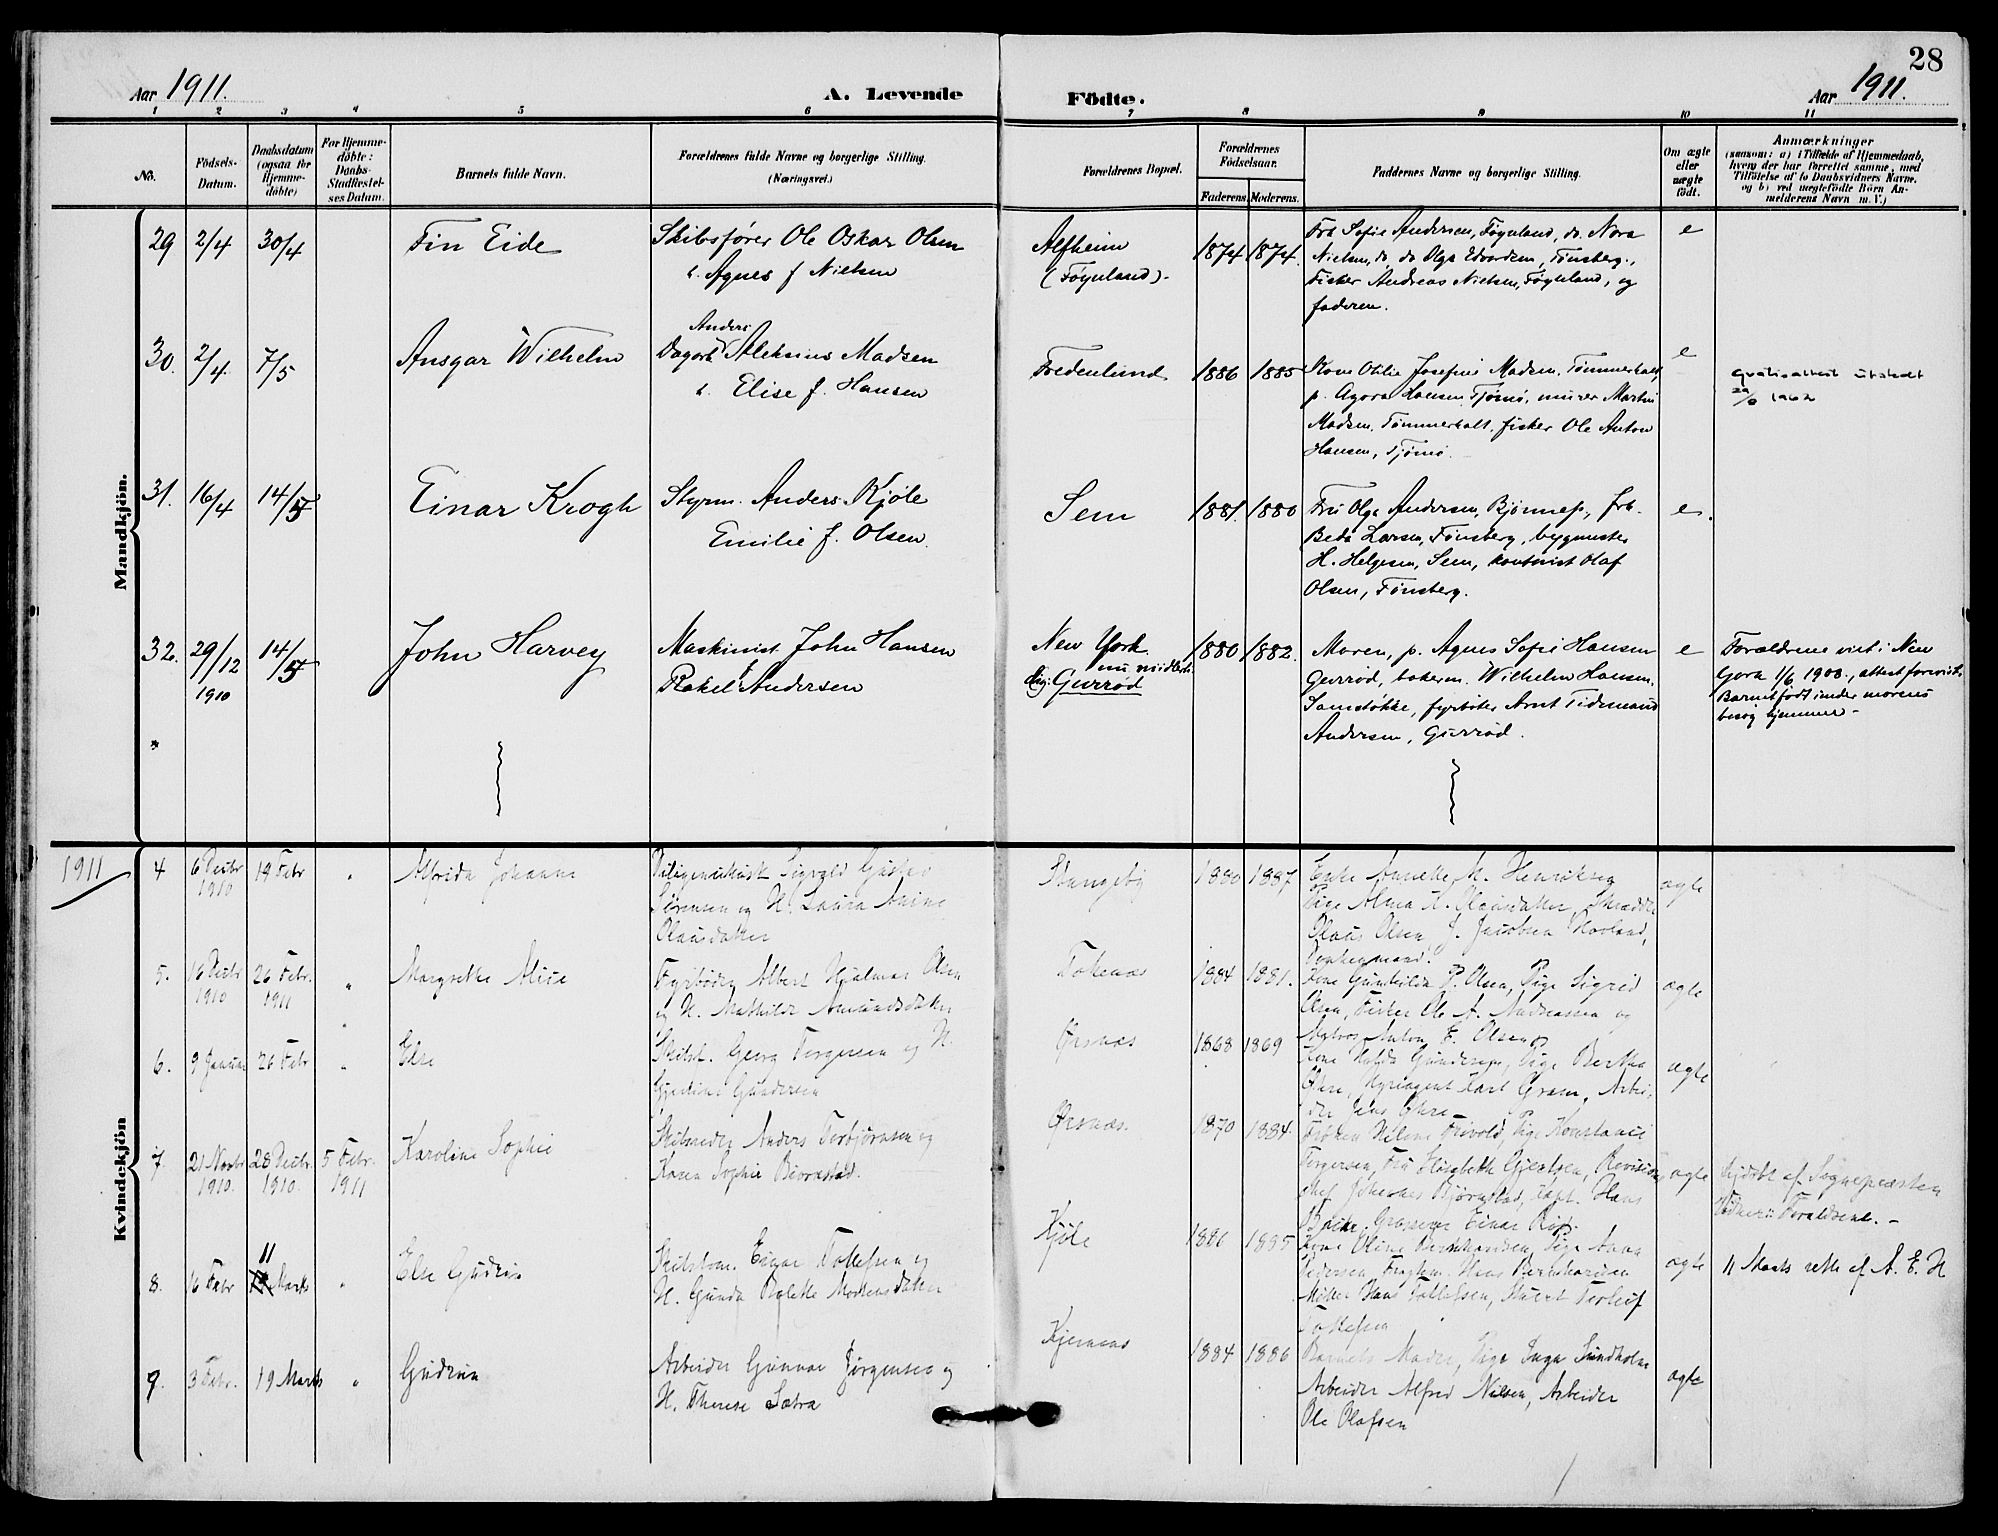 28
Aar 1911.
A. Levende Födte.
Aar 1911.
1 2 3 4 5 6 7 8 9 10 11
No.
Födsels-Datum.
Daabsdatum (ogsaa for Hjemme-döbte)
For Hjemme-döbte: Daabs-Stadfæstel-ses Datum.
Barnets fulde Navn.
Forældrenes fulde Navne og borgerlige Stilling.
(Næringsvei.)
Forældrenes Bopæl.
Forældrenes Födselsaar.
Faderens. Moderens.
Faddernes Navne og borgerlige Stilling.
Om ægte eller uægte født.
Anmærkninger
(saasom: a) i Tilfælde af Hjemmedaab,
hvem der har forrettet samme, med
Tilföielse af to Daabsvidners Navne,
og b) ved uægtefödte Börn An-
melderens Navn m. V.)
Mandkjön.
29 2/4 30/4 Fin Eide
Skibsfører Ole Oskar Olsen
Agnes f Nielsen
Alfheim
(Føynland).
1874 1874.
Frk Sofie Andersen, Føynland, do. Nora
Nielsen, do do Olga Edvardsen, Tønsberg.,
Fisker Andreas Nielsen, Føynland, og
faderen.
e
30. 2/4 7/5 Ansgar Wilhelm
Anders
Dagarb Aleksius Madsen
Elise f. Hansen
Fredenlund 1886 1885
Kone Othilie Josefine Madsen, Tømmerholt,
p. Agora Hansen, Tjømø, murer Martin
Madsen, Tømmerholt, fisker Ole Anton
Hansen, Tjømø.
e
Gratisattest utstedt
1962
31. 16/4 14/5 Einar Krogh
Styrm. Anders Kjøle
Emilie f. Olsen.
Sem 1881. 1880
Fru Olga Andersen, Bjønnes., frk.
Beda Larsen, Tønsberg, bygmester
H. Helgesen, Sem, kontorist Olaf
Olsen, Tønsberg.
e.
32. 29/12 1910 14/5 John Harvey
Maskinist John Hansen
Rakel f Andersen
New York.
nu midlert.
Gurrød
1880 1882.
Moren, p. Agnes Sofie Hansen
Gurrød, bakerm. Wilhelm Hansen,
fyrbøter Arnt Tidemand
Andersen, Gurrød.
e
Forældrene viet i New
1/6 1908., attest forevist.
Barnet født under morens
besøg hjemme-
Kvindekjön
1911
4 6 Decbr 1910 19 Febr " Alfrida Johanne
Sigvald Gustav
Sørensen og H. Laura Anine
Olausdatter
Stangeby 1880 1887
Enke Annette M. Henriksen
Pige Alma A. Olausdatter, Skrædder
Olaus Olsen, J. Jacobsen Havland,
ægte
5. 18 Decbr 1910 26 Febr. 1911 " Margrethe Alice
Fyrbøder Albert Hjalmar Olsen
og H. Mathilde Amundsdatter
Tokenæs 1884 1881.
Kone Gunhilda P. Olsen, Pige Sigrid
Olsen, Fisker Ole A. Andreassen og
Matros Anton E. Olsen
ægte
6. 9 Januar 26 Febr " Else
Skibsf. Georg Torgersen og H.
Gundersen
Ørsnæs 1868 1869
Kone Hulda Gundersen, Pige Bertha
Øhre, Hyreagent Carl Gram, Arbei-
der Jens Øhre
ægte
7. 21 Novbr 1910. 28 Decbr. 1910. 5 Febr. 1911 Karoline Sophie
Skibsreder Anders Torbjørnsen og
Karen Sophie Bjørnstad.
Ørsnæs. 1870 1884.
Frøken Helene Frivold, Pige Konstance
Torgersen, Fru Elisabeth Gjertsen, Revisions
chef Johannes Bjørnstad, Capt. Hans
Einar
ægte
Hjdøbt af Sognepresten
Vidner: Forældrene. -
8. 16 Febr 11 Marts " Else Gudrun
Skibstøm. Einar Tollefsen og
H. Gunda Bolette Mortensdatter
Kjøle 1886 1885
Kone Oline Bernhardsen, Pige Anna
Pedersen, Hans Bernhardsen
Møller Hans Tollefsen, Stuert Torleif
Tollefsen
ægte
11 Marts rette af A. E. H
9. 3 Febr. 19 Marts " Gudrun
Arbeider Gunnar Jørgensen og
H. Therese Sætra
Kjernæs 1884 1886
Barnets Moder, Pige Inga Sundholm
Arbeider Alfred Nilsen, Arbeider
Ole Olafsen
ægte